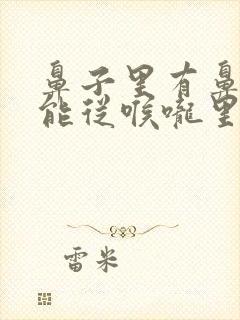 鼻子里有鼻
能从喉咙里
雷米